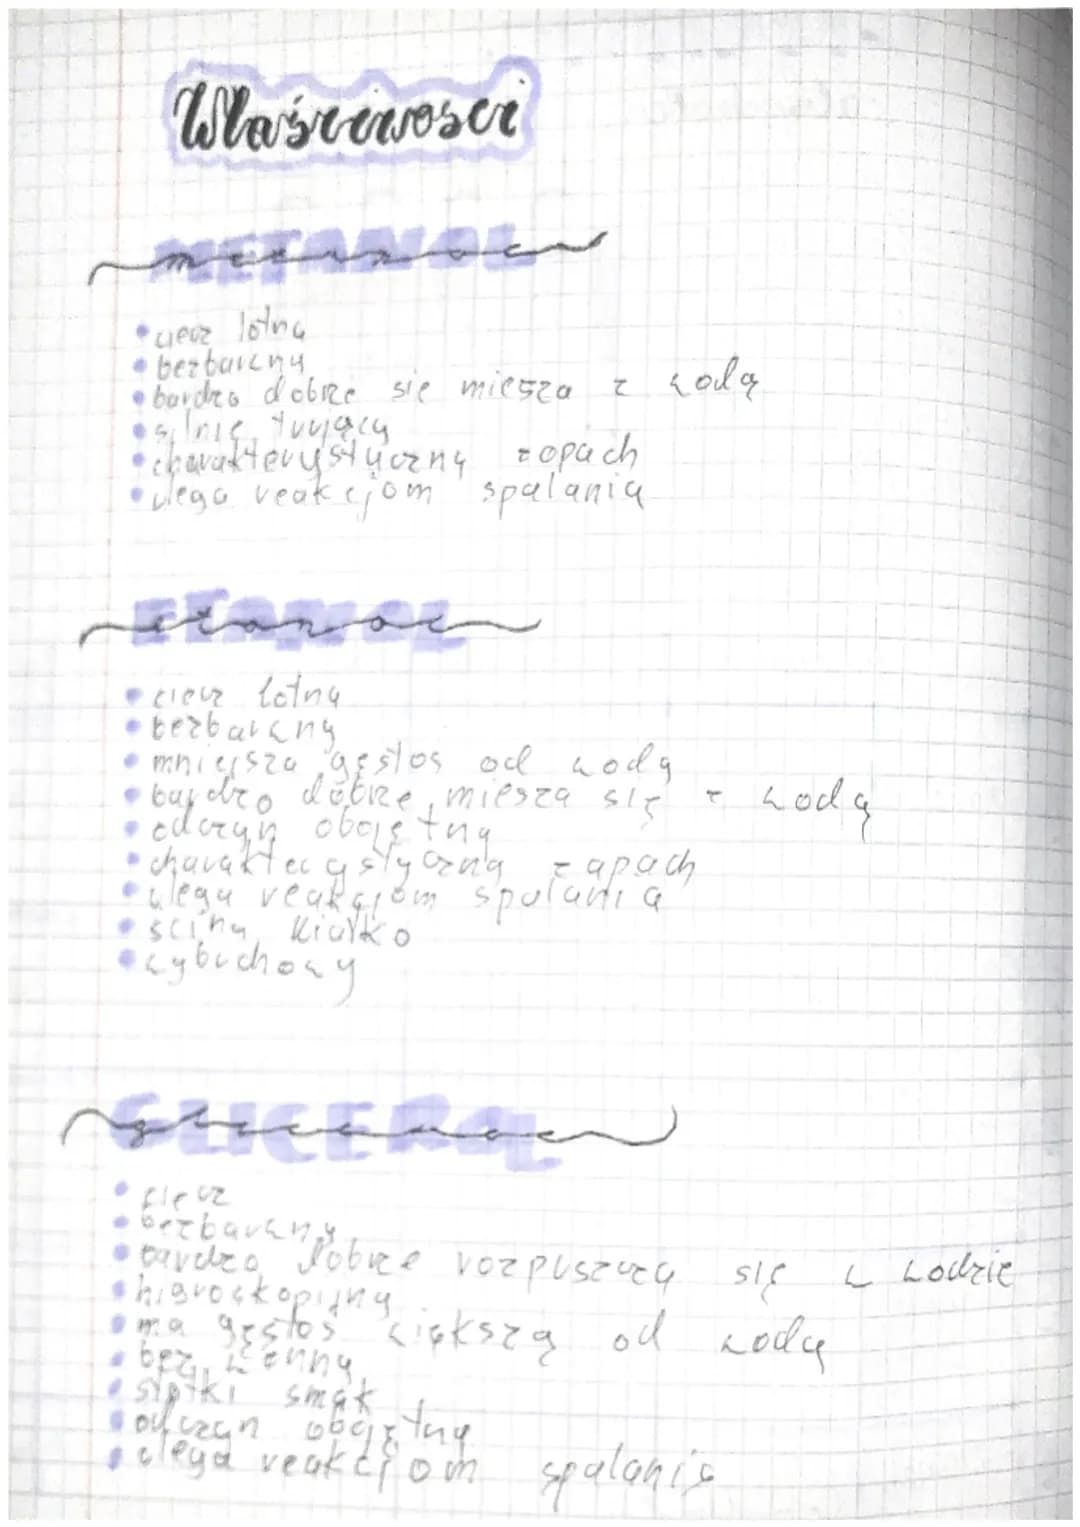 Właściwości
METANOL
• ciecz lotna
• bezbarwny
• bardzo dobrze się miesza z wodą
• silnie trujący
• charakterystyczny zapach
• ulega reakcjom spalania
ETANOL
• ciecz lotna
• bezbarwny
• mniejsza gęstos od wody
• bardzo dobrze miesza się z wodą
• odczyn obojętny
• charakterystyczny zapach
• ulega reakcjom spalania
• ścina białko
• wybuchowy
GLICEROL
• ciecz
• bezbarwny
• bardzo dobrze rozpuszcza się w wodzie
• higroskopijny
• ma gęstos większą od wody
• bez wonny
• słotki smak
• odczyn obojętny
• ulega reakcjom spalania